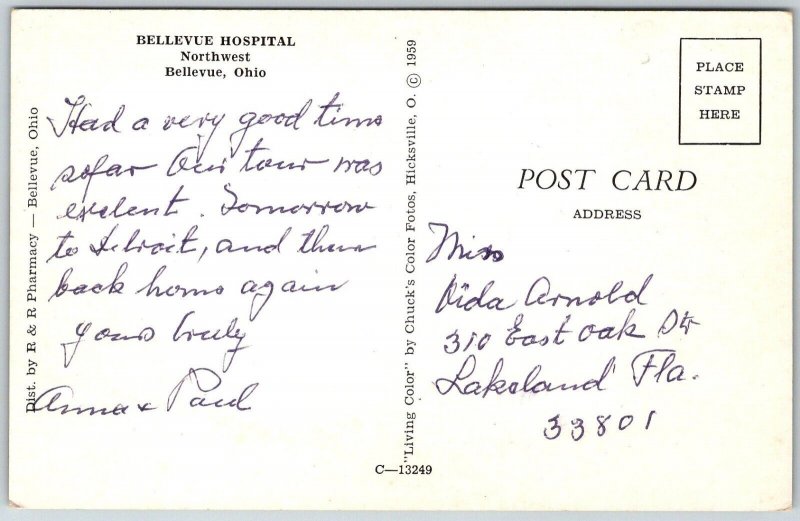 BELLEVUE HOSPITAL
Northwest
Bellevue, Ohio
Had a very good time
sofar Our tour was
exelent. Tomorrow
to Detroit, and then
back home again
yours truly
Anna & Paul
Dist. by R & R Pharmacy — Bellevue, Ohio
"Living Color" by Chuck's Color Fotos, Hicksville, O. © 1959
C—13249
PLACE
STAMP
HERE
POST CARD
ADDRESS
Miss
Vida Arnold
310 East Oak Str
Lakeland Fla.
33801